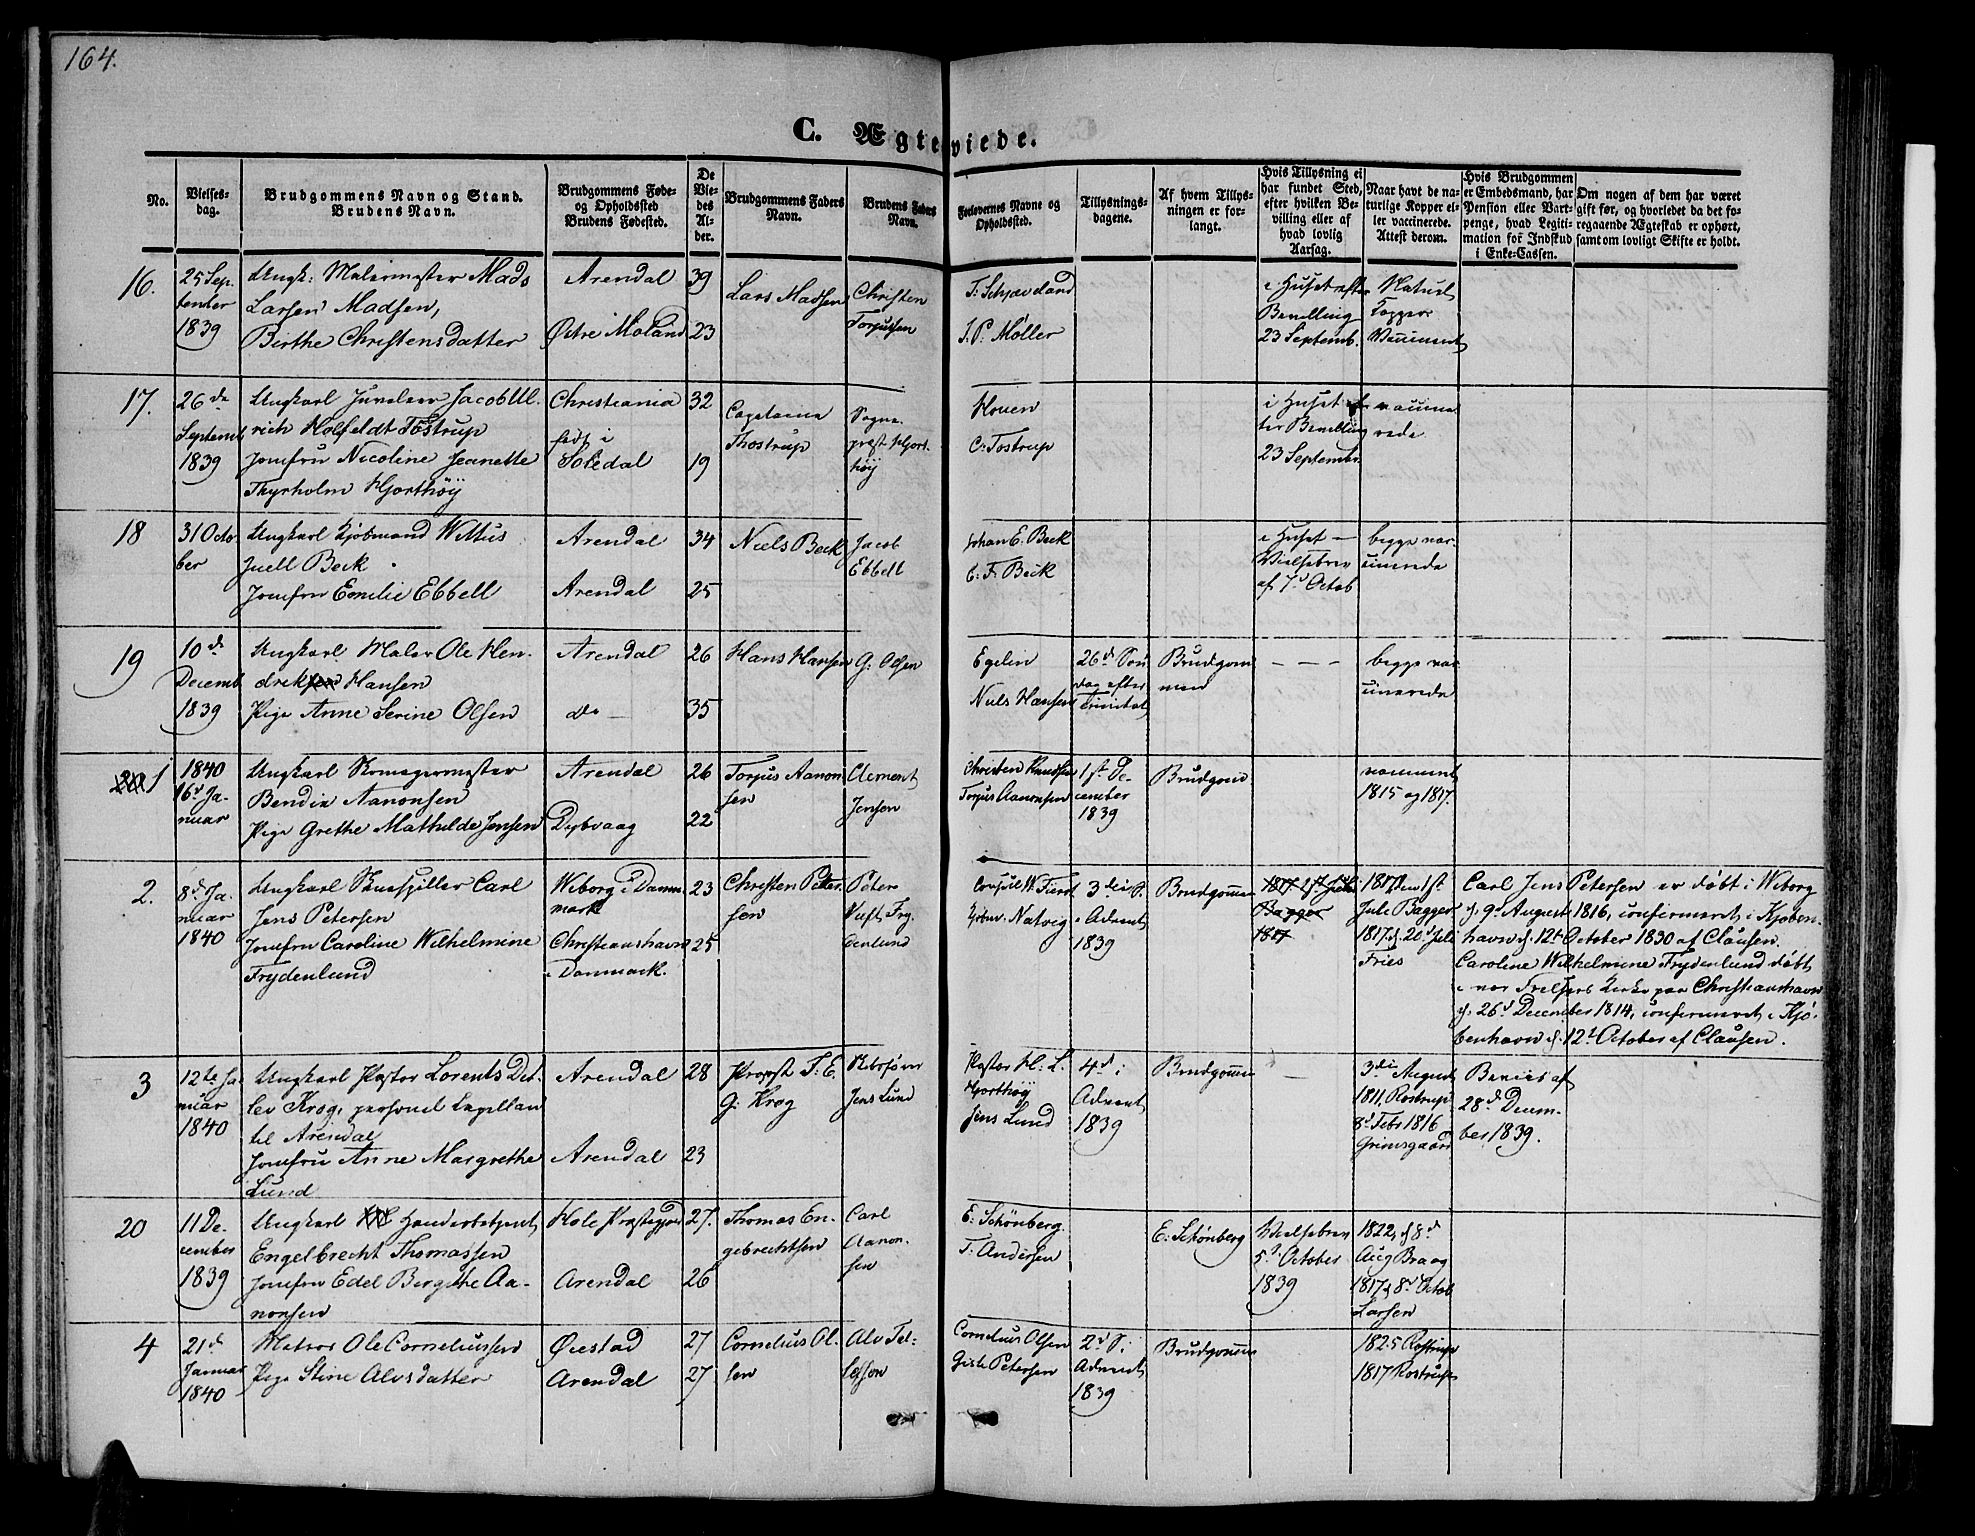 164.
C. Ægteviede.
No.
Vielses-
dag.
Brudgommens Navn og Stand.
Brudens Navn.
Brudgommens Føde-
og Opholdssted
Brudens Fødested.
De
Vie-
des
Al-
der.
Brudgommens Faders
Navn.
Brudens Faders
Navn.
Forlovernes Navne og
Opholdssted.
Tillysnings-
dagene.
Af hvem Tillys-
ningen er for-
langt.
Hvis Tillysning ei
har fundet Sted,
efter hvilken Be-
villing eller af
hvad lovlig
Aarsag.
Naar havt de na-
turlige Kopper el-
ler vaccinerede.
Attest derom.
Hvis Brudgommen
er Embedsmand, har
Pension eller Vart-
penge, hvad Legiti-
mation for Indskud
i Enke-Cassen.
Om nogen af dem har været
gift før, og hvorledet da det fo-
regaaende Ægteskab er ophørt,
samt om lovligt Skifte er holdt.
16.
25 Sep-
tember
1839
Ungk: Malermester Mads
Larsen Madsen,
Birthe Christensdatter
Arendal
Østre Moland
39
23
Lars Madsen
Christen
Torjussen
T: Schjøveland
J. P. Møller
i Huset efter
Bevilling
23 Septemb.
Naturl
Kopper
Vaccineret
17.
26de
Septemb
1839
Ungkarl Juveleer Jacob Ul-
rich Holfeldt Tostrup
Jomfru Nicoline Jeanette
Thyrholm Hjorthöÿ
Christiania
født i
Soledal
32
19
Thostrup
Sogne-
præst Hjort-
höÿ
Hoven
C: Tostrup
i Huset ef-
ter Bevilling
23 Septembr.
vaccine
rede
18
31 Octo
ber
Ungkarl Kjöbmand Wittus
Juell Beck
Jomfru Emilie Ebbell
Arendal
Arendal
34
25
Niels Beck
Jacob
Ebbell
Johan E. Beck
C: F: Beck
i Huset —
Vielsebrev
af 7d Octob
begge vac-
cinerede
19
10de
Decemb
1839
Ungkarl Maler Ole Hen-
driksen Hansen
Pige Anne Serine Olsen
Arendal
do —
26
35
Hans Hansen
G: Olsen
Egelin
Niels Hansen
26d Søn
dag efter
Trinitat
Brudgom
men
— — —
begge vac-
cinerede
20 1
1840
16d Ja-
nuar
Ungkarl Skomagermester
Bendix Aanonsen
Pige Grethe Mathilde Jensen
Arendal
Dybvaag
26
22
Torjus Aanon
sen
Clement
Jensen
Christen Knudsen
Torjus Aanonsen
1st De-
cember
1839
Brudgom
vaccineret
1815 og 1817.
2.
8d Ja-
nuar
1840
Ungkarl Skuespiller Carl
Jens Petersen
Jomfru Caroline Wilhelmine
Frydenlund
Wiborg i Danm
mark
Christianshavn
i Danmark.
23
25
Christen Peter-
sen
Peter
Fry-
denlund
Consul W. Fürst
Natvig
3die S.
i Advent
1839
Brudgommen
1817 1st Juli
Bagger
1817
1817 den 1st
Jule Bagger
1817 d. 20d Juli
Fries
Carl Jens Petersen er døbt i Wiborg
d. 9d August 1816, confirmeret i Kjøben-
havn d. 12t October 1830 af Clausen.
Caroline Wilhelmine Frydenlund døbt
i vor Frelsers Kirke paa Christianshavn
d. 26d December 1814, confirmeret i Kjø-
benhavn d. 12t October af Clausen.
3
12te Ja
nuar
1840
Ungkarl Pastor Lorents Det-
lev Krog, personel Capellan
til Arendal
Jomfru Anne Margrethe
Lund
Arendal
Arendal
28
23
Propst T: E.
G: Krog
Jens Lund
Pastor H: L.
Hjorthöÿ
Jens Lund
4d i
Advent
1839
Brudgommen
—
3die August
1811, Rostrup
8d Febr 1816
Grimsgaard
Bevis af
28d Decem-
ber 1839.
20
11 De-
cember
1839
Ungkarl Handelsbetjent
Engelbrecht Thomassen
Jomfru Edel Bergithe Aa-
nonsen
Hole Præstegjeld
Arendal
27.
26
Thomas En-
gebrechtsen
Carl
Aanon-
sen
E: Schönberg.
T: Andersen
E: Schönberg
Vielsebrev
5d October
1839
1822, d 8d
Aug Braag
1817 d 8d Octob
Larsen
4
21d
Januar
1840
Matros Ole Corneliussen
Pige Stine Alvsdatter
Øiestad
Arendal
27
27
Cornelius Ol-
sen
Alv Tel-
lefsen
Cornelius Olsen
Petersen
2d S:
Advent
1839
Brudgommen
1825 Rostrup
1817 Rostrup